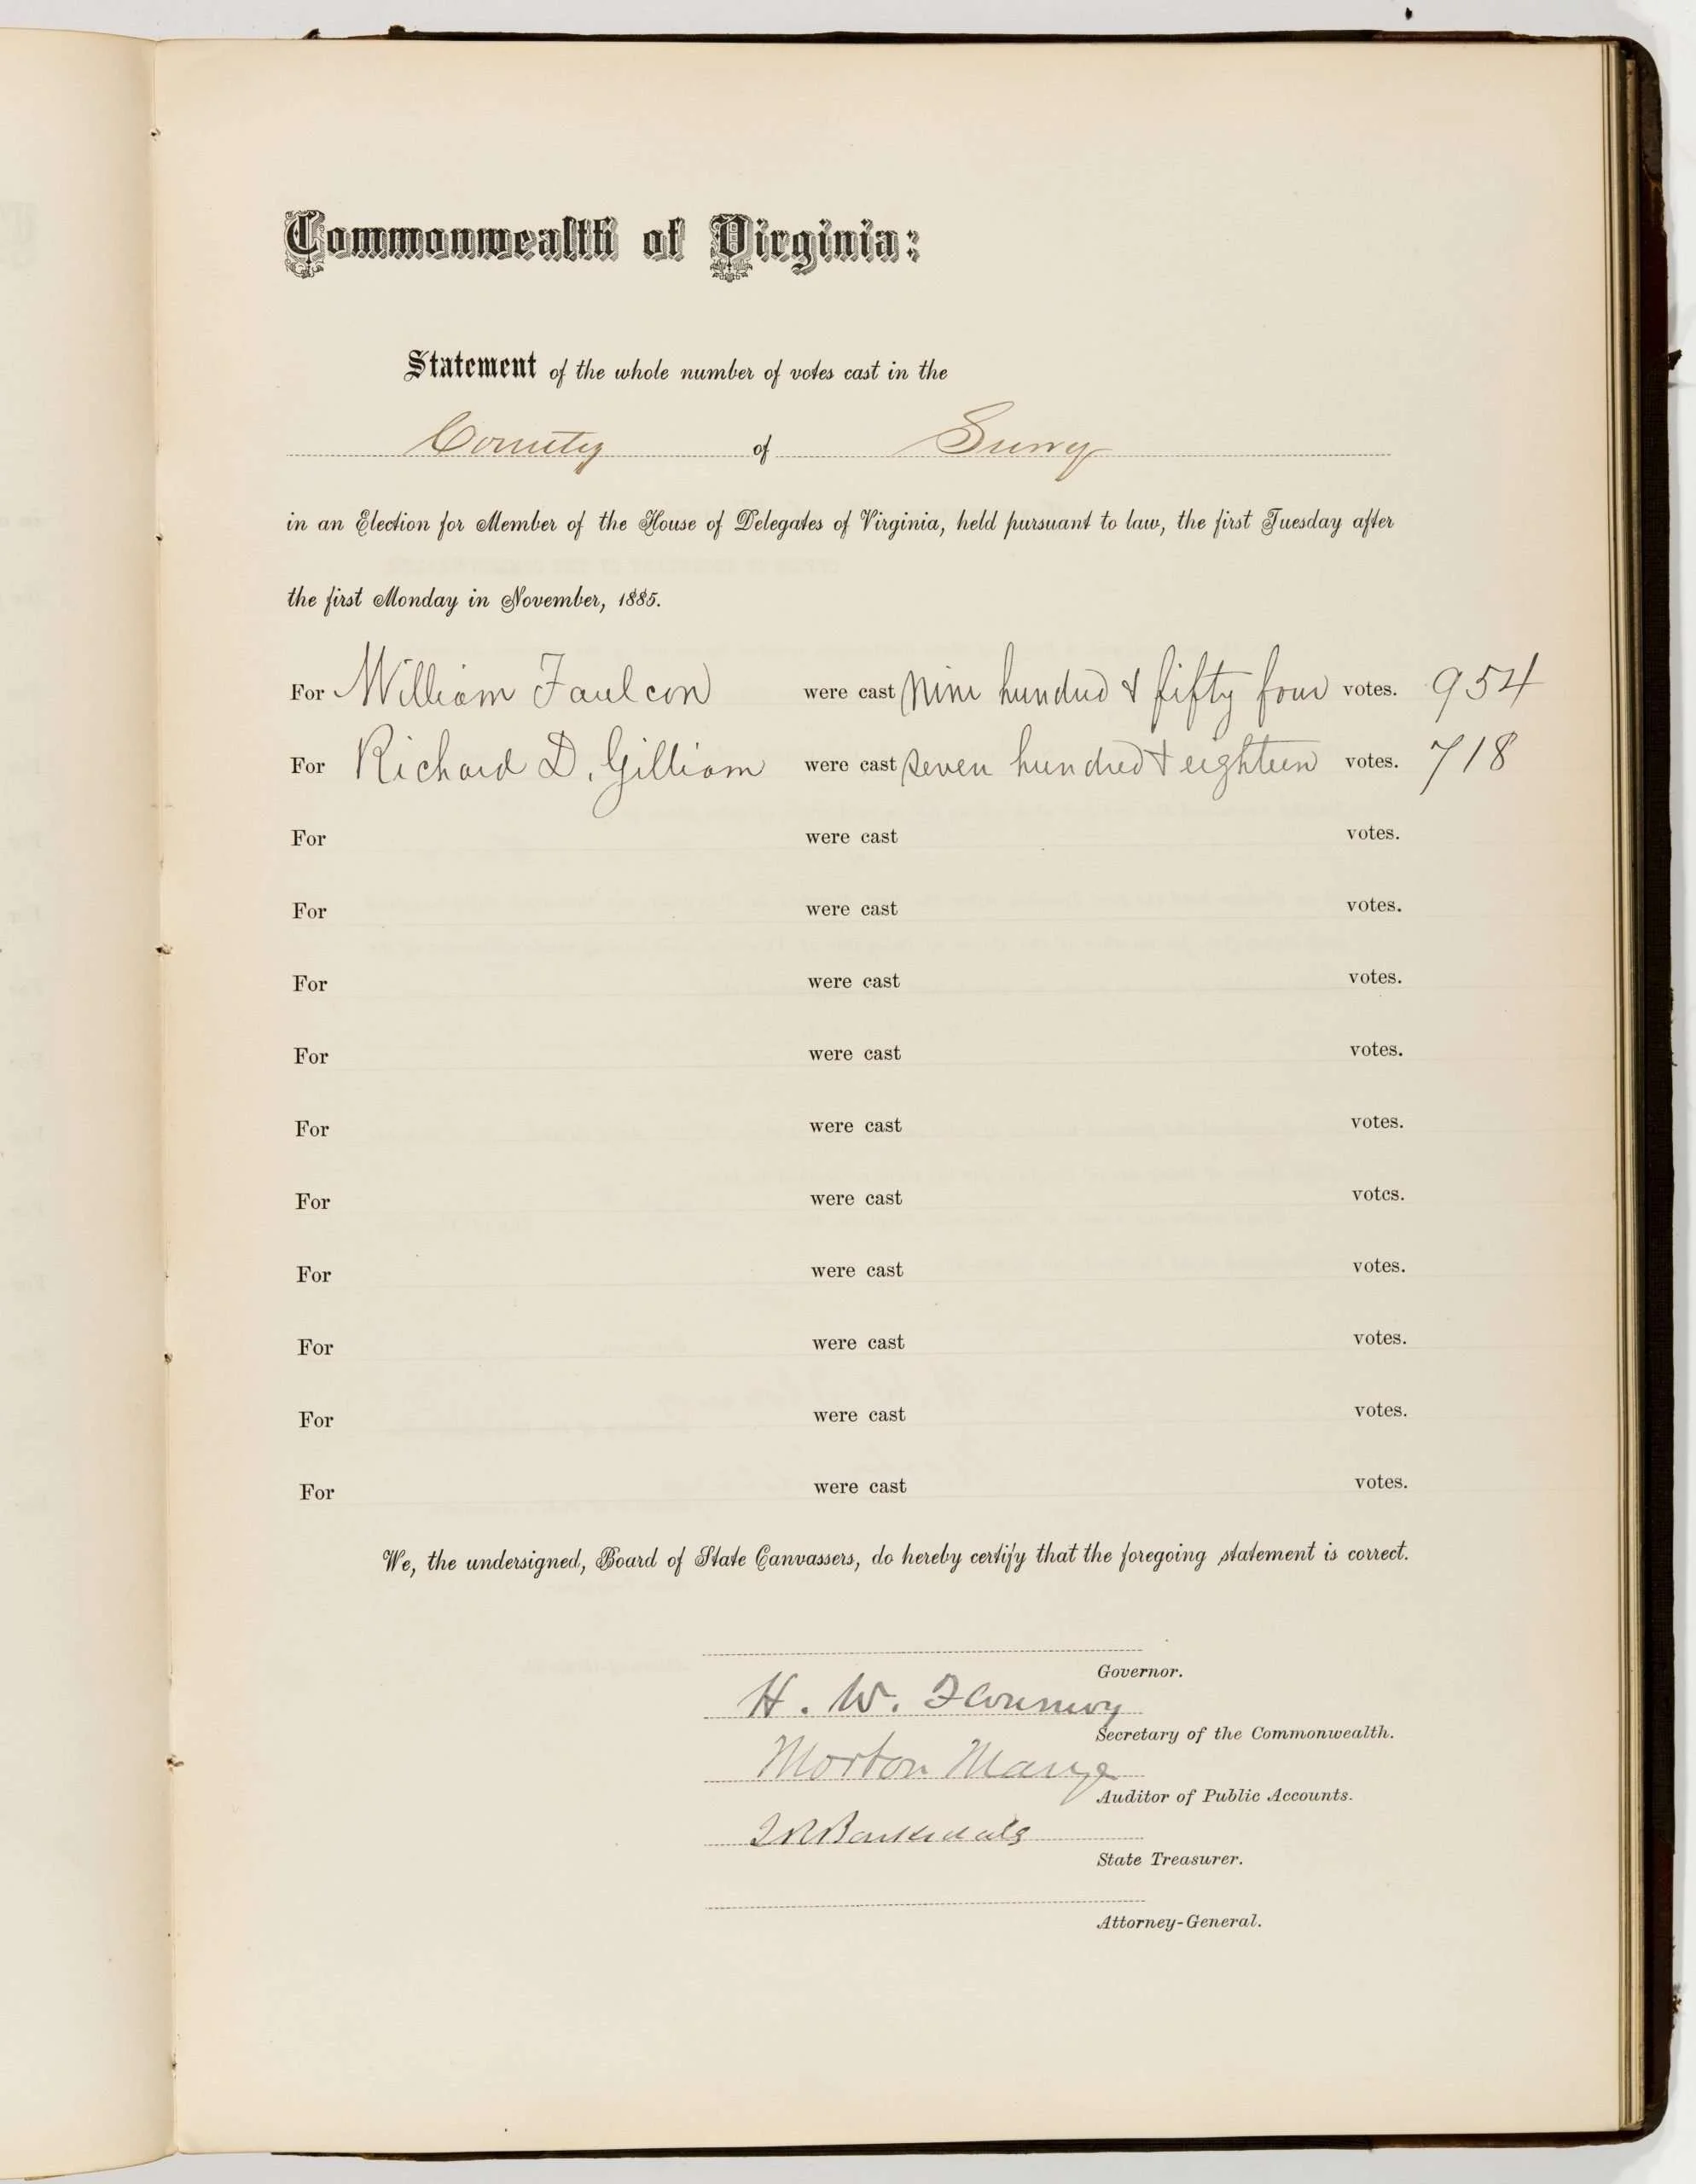 Commonwealth of Virginia:
Statement of the whole number of votes cast in the
County of Surry
in an Election for Member of the House of Delegates of Virginia, held pursuant to law, the first Tuesday after
the first Monday in November, 1885.
For William Faulcon were cast Nine hundred & fifty four votes. 954
For Richard D. Gilliam were cast seven hundred & eighteen votes. 718
For were cast votes.
For were cast votes.
For were cast votes.
For were cast votes.
For were cast votes.
For were cast votes.
For were cast votes.
For were cast votes.
For were cast votes.
For were cast votes.
We, the undersigned, Board of State Canvassers, do hereby certify that the foregoing statement is correct.
Governor.
H. W. Flournoy
Secretary of the Commonwealth.
Morton Marye
Auditor of Public Accounts.
Barksdale
State Treasurer.
Attorney-General.